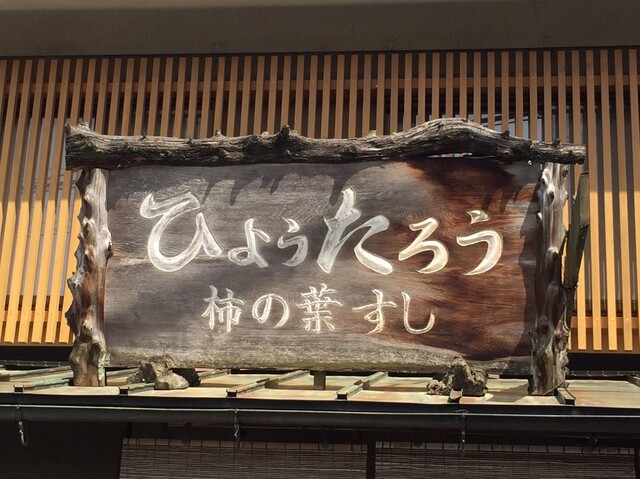 ひょうたろう
柿の葉すし